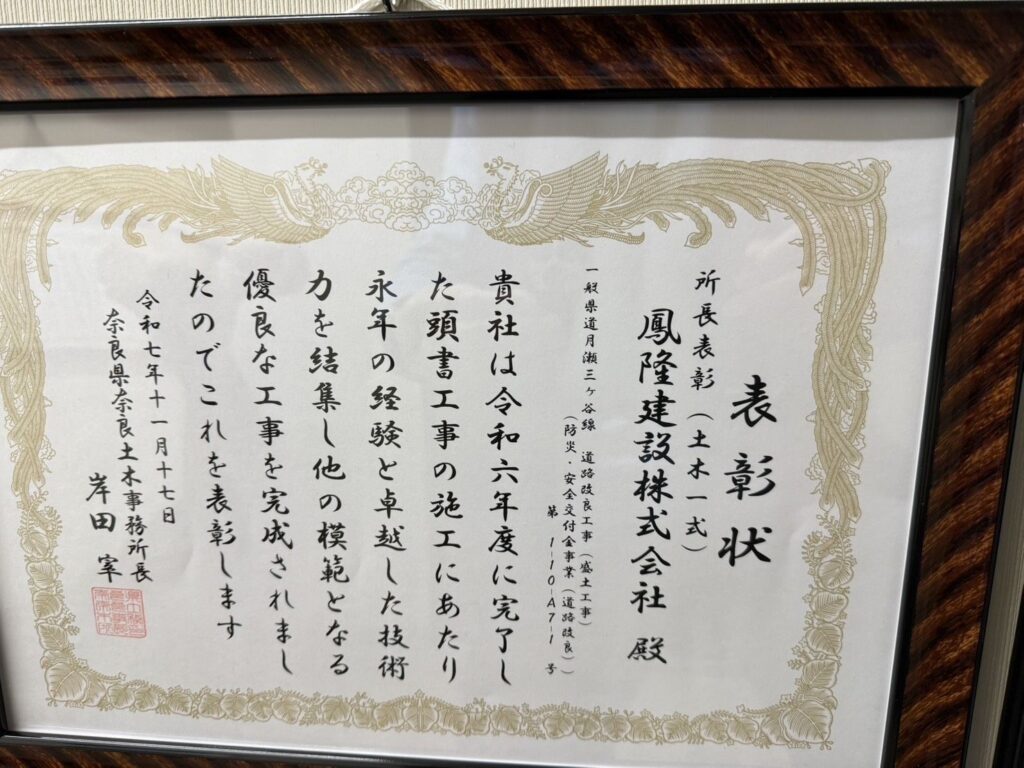 表彰状
所長表彰（土木一式）
鳳隆建設株式会社 殿
一般県道月瀬三ヶ谷線 道路改良工事（盛土工事）
（防災・安全交付金事業（道路改良））
第 1-10-A7-1 号
貴社は令和六年度に完了し
た頭書工事の施工にあたり
永年の経験と卓越した技術
力を結集し他の模範となる
優良な工事を完成されまし
たのでこれを表彰します
令和七年十一月十七日
奈良県奈良土木事務所長
岸田